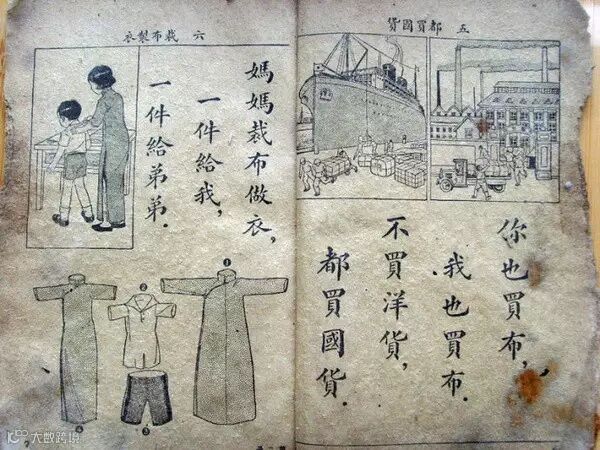 五 都買國貨
你也買布，
我也買布.
不買洋貨，
都買國貨.
六 裁布製衣
媽媽裁布做衣，
一件給我，
一件給弟弟.
1
2
3
大数跨境